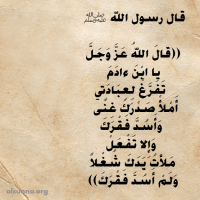 قال رسول الله ﷺ
((قَالَ اللهُ عَزَّ وَجَلَّ
يا ابْنَ ءادَمَ
تَفَرَّغْ لعِبادَتي
أَمْلأْ صَدْرَكَ غنًى
وَأسُدَّ فقْرَكَ
وَإلا تَفْعَلْ
مَلأتُ يَدَكَ شُغْلاً
وَلَمْ أَسدَّ فقْرَكَ))
alsunna.org